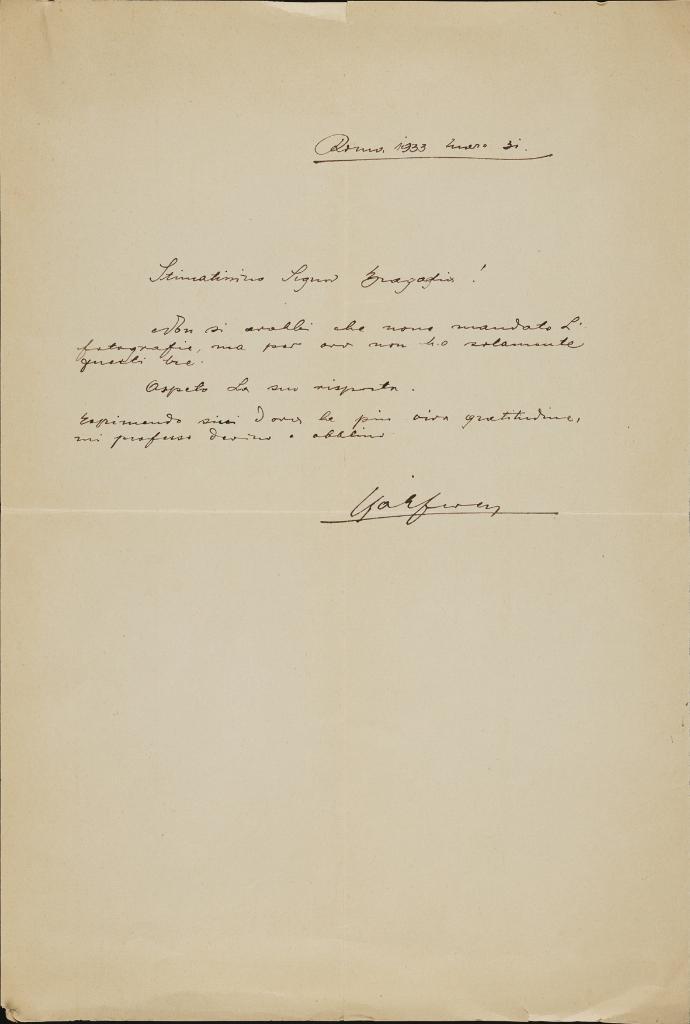 Roma 1933 marzo 31.
Stimatissimo Signor Bragaglia!
Non si arabbi che nono mandato L'
fotografie, ma per ora non ho solamente
questi tre.
Aspeto La sua risposta.
Esprimendo sua la piu viva gratitudine,
mi professo devino e obblimo